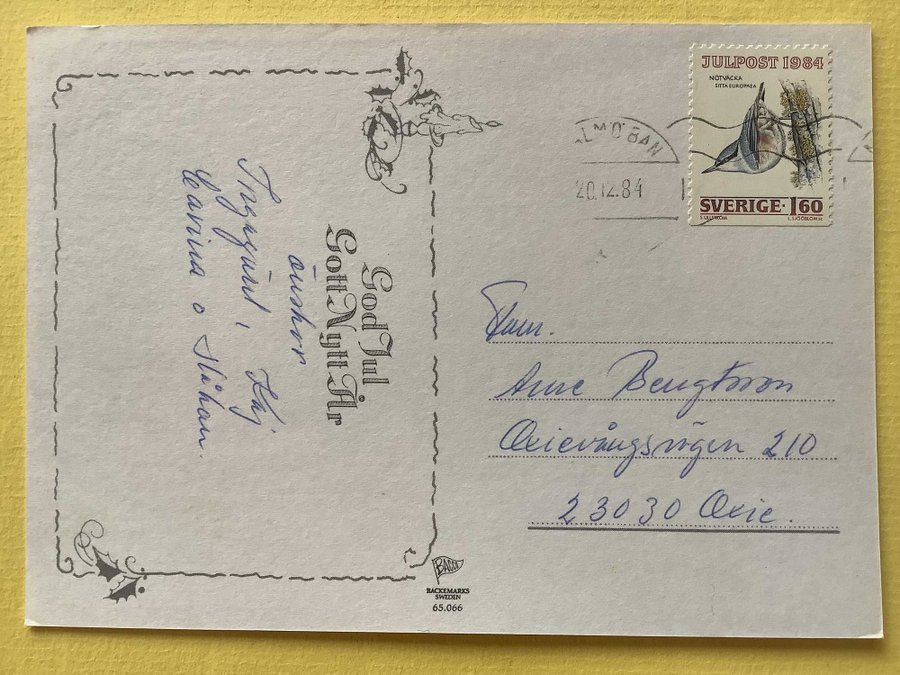 God Jul
Gott Nytt År
önskar
Ingegärd, Kaj
Carina o Håkan.
JULPOST 1984
NÖTVÄCKA
SITTA EUROPAEA
SVERIGE · 1.60
LMÖ BAN
20.12.84
Fam.
Arne Bengtsson
Oxievångsvägen 210
23030 Oxie.
BACO
BACKEMARKS
SWEDEN
65.066